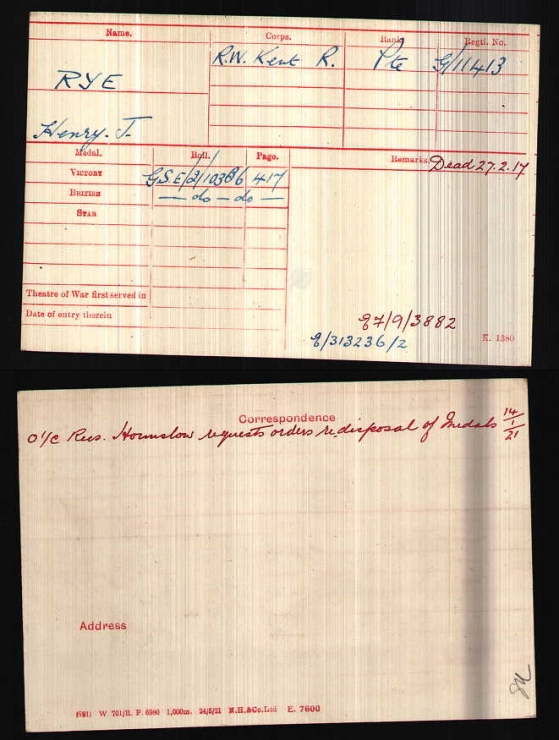 Name. Corps. Rank. Regtl. No.
RYE R.W. Kent R. Pte G/11413
Henry. J.
Medal. Roll. Page. Remarks. Dead 27.2.17
VICTORY G.S.E/2/103B6 417
BRITISH — do — do —
STAR
Theatre of War first served in
Date of entry therein
87/9/3882
8/313236/2 K. 1380
Correspondence
O i/c Recs. Hounslow requests orders re. disposal of medals 14/1/21
Address
W. 761/R. P. 6580 1,000m. 24/5/21 N.H.&Co.Ltd E. 7600